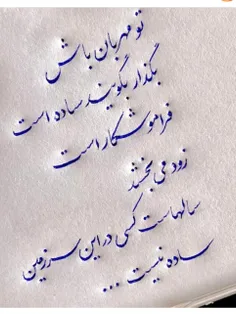 تو مهربان باش
بگذار بگویند ساده است
فراموشکار است
زود می بخشد
سالهاست کسی در این سرزمین
ساده نیست ...